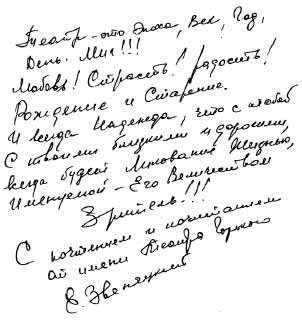 Театр - это Эпоха, Век, Год,
День. Миг!!!
Любовь! Страсть! Радость!
Рождение и Старение.
И всегда Надежда, что с тобой
С твоими близкими и дорогими,
всегда будет Мгновение Жизнью,
Именуемой - Его Величеством
Зритель!!!
С почтением и почитанием
от имени Театра Горького
Е. Звеняцкий